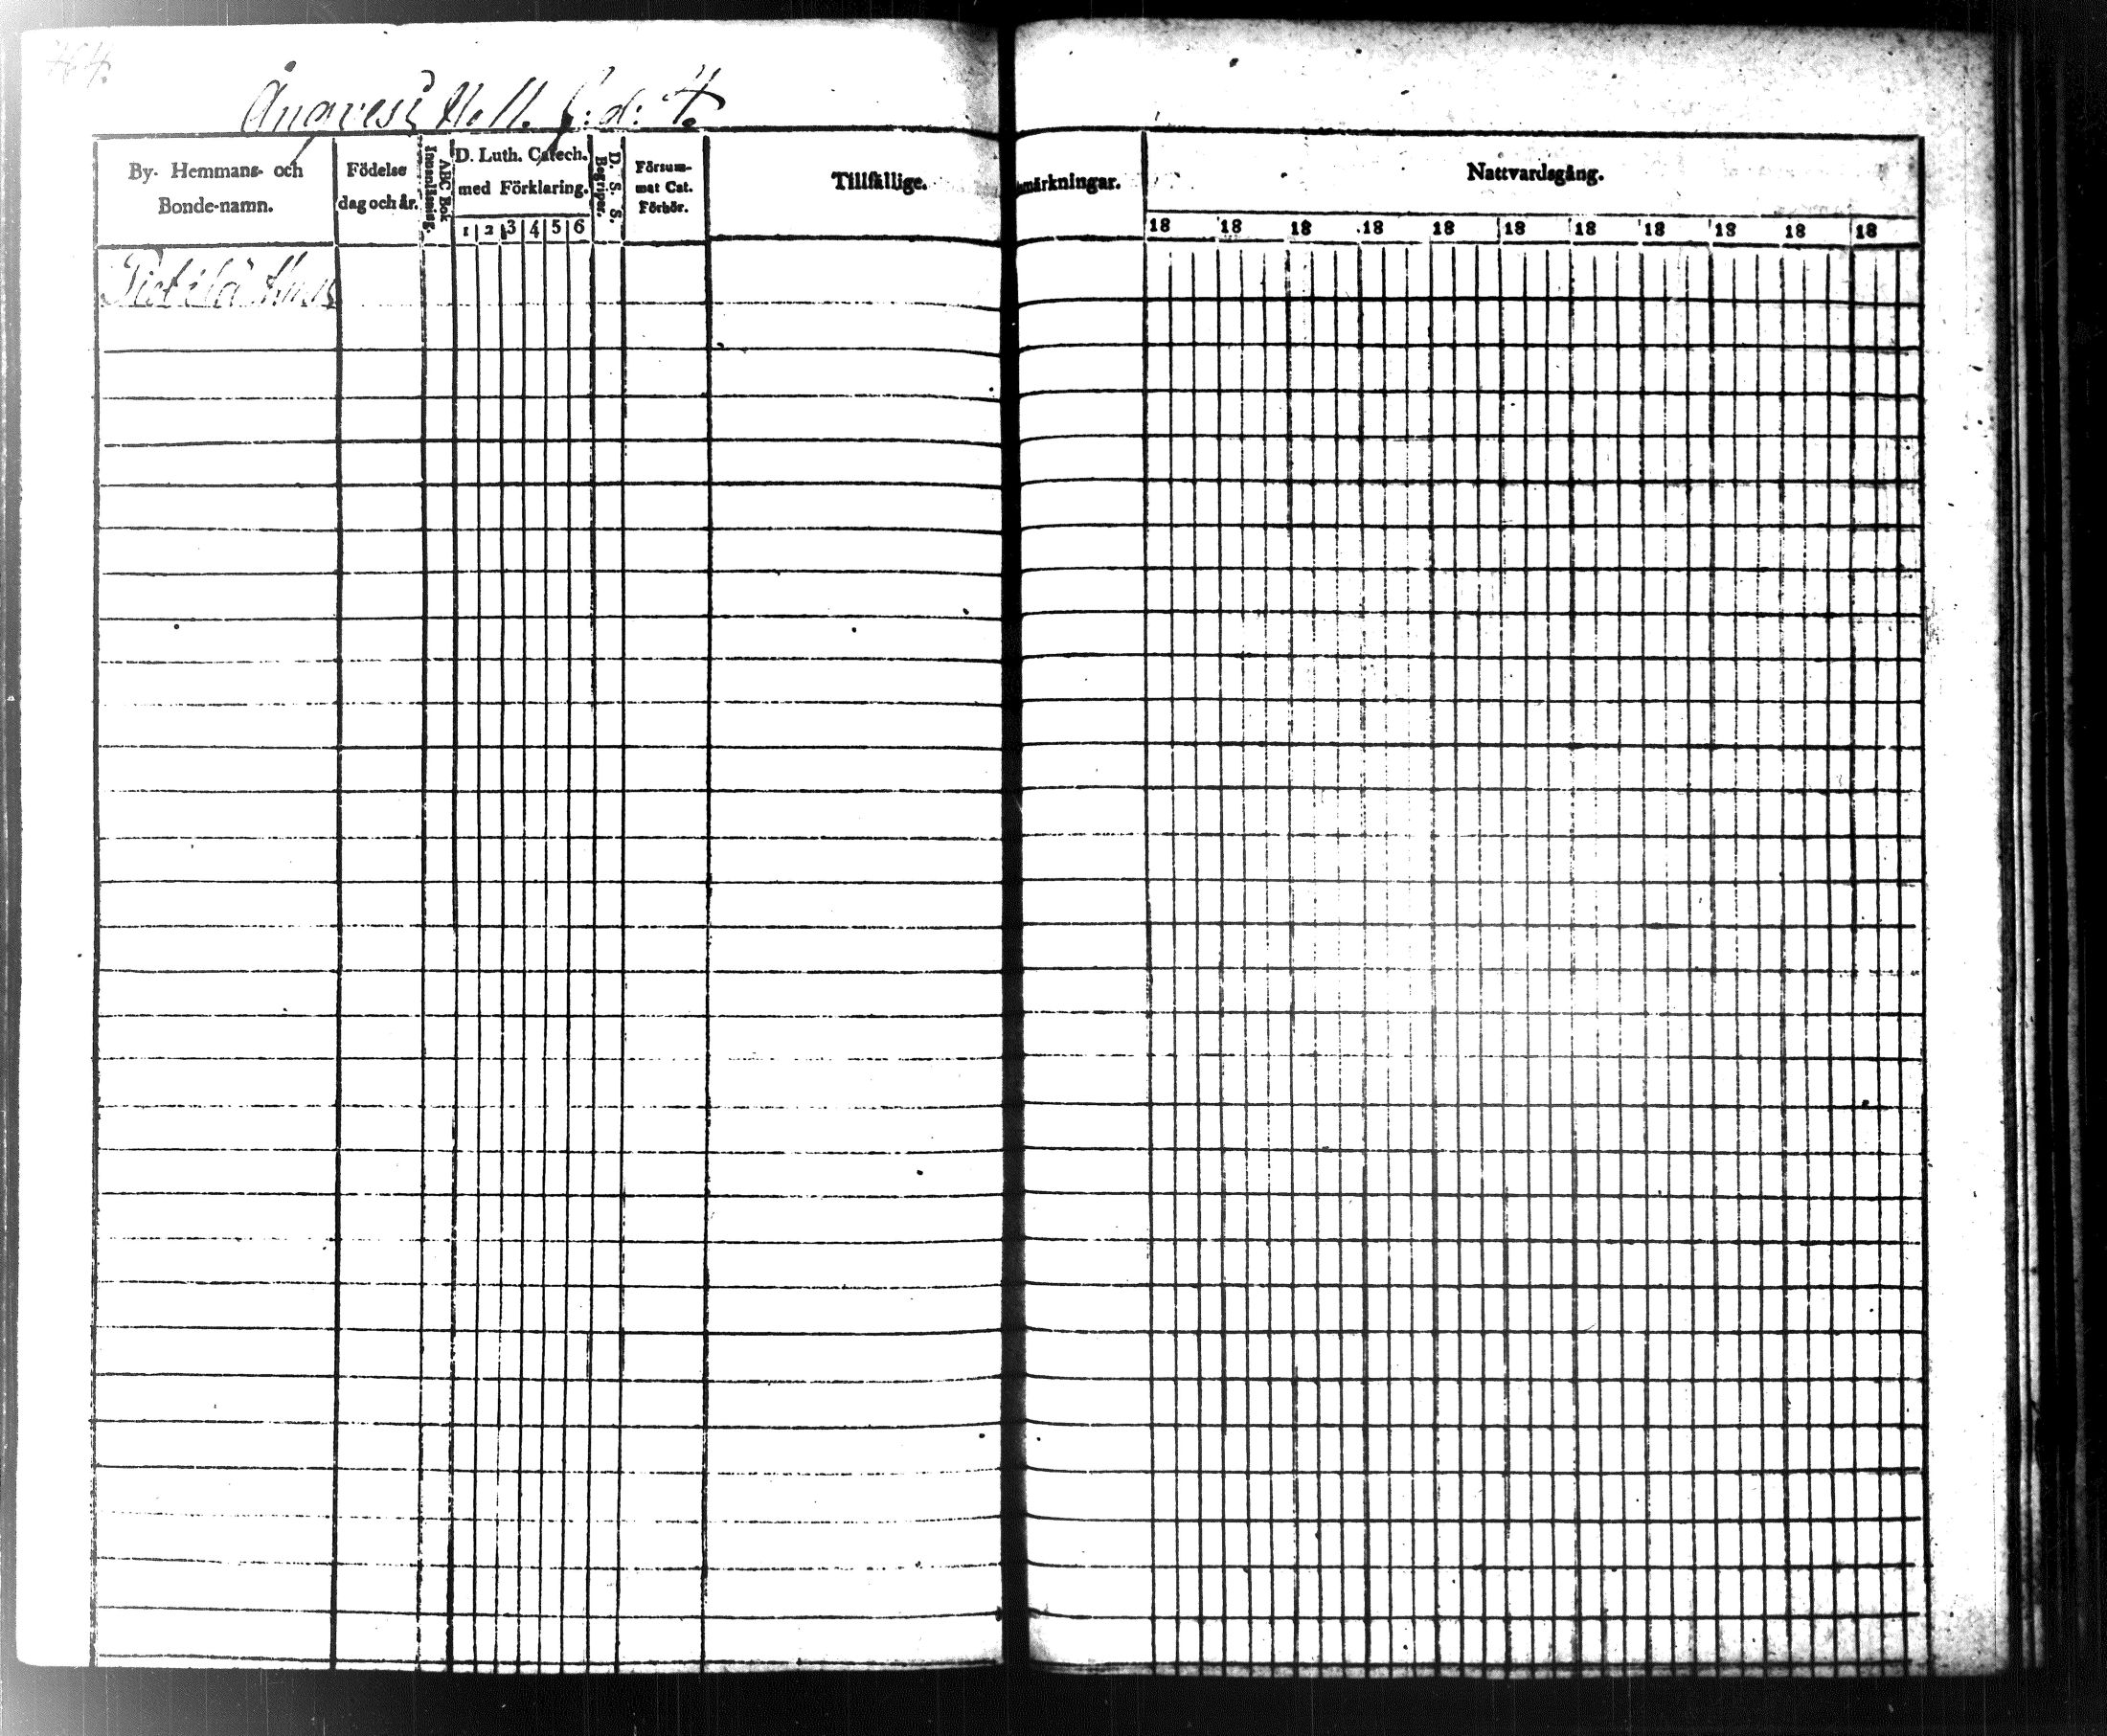 464.
By- Hemmans- och
Bonde-namn.
Födelse
dag och år.
ABC Bok
Innanläsning.
D. Luth. Catech.
med Förklaring.
1 2 3 4 5 6
D. S. S.
Begriper.
Försum-
mat Cat.
Förhör.
Tillfällige.
märkningar.
Nattvardsgång.
18 18 18 18 18 18 18 18 18 18 18